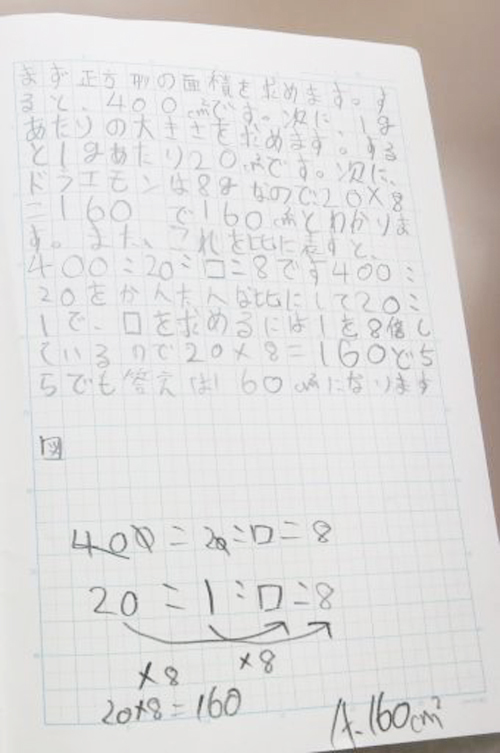 まず正方形の面積を求めます。す
ると、400㎠です。次に、1g
あたりの大きさを求めます。する
と1gあたり20㎠です。次に、
ドラエモンは8gなので、20×8
=160で160㎠とわかりま
す。また、これを比に表すと、
400:20=□:8です400:
20をかんたんな比にして20:
1で、□を求めるには1を8倍し
ているので20×8=160どち
らでも答えは160㎠になります
図
400:20=□:8
20:1=□:8
×8 ×8
20×8=160
A.160cm²